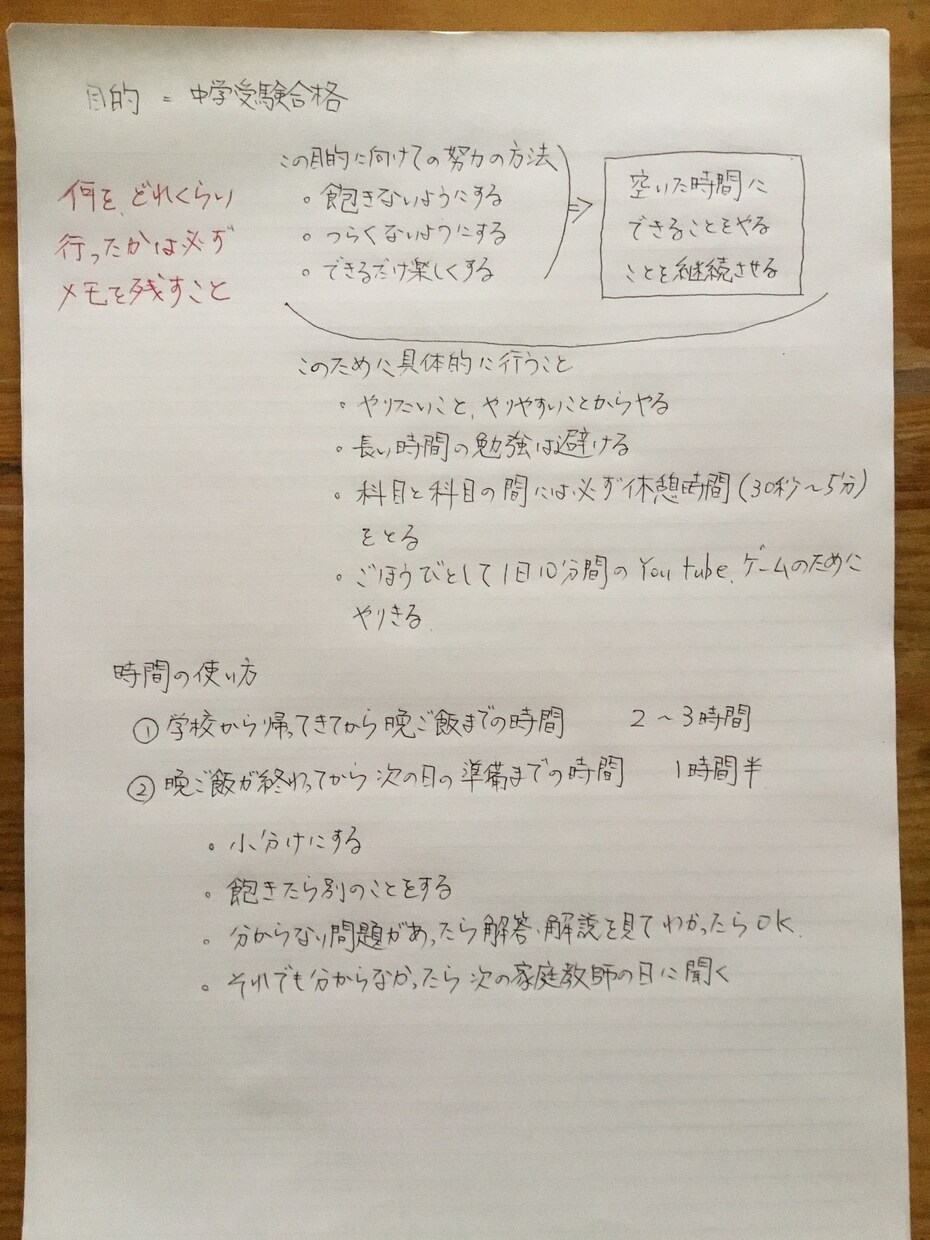 目的 = 中学受験合格
この目的に向けての努力の方法
。飽きないようにする
。つらくないようにする
。できるだけ楽しくする
⇒
空いた時間に
できることをやる
ことを継続させる
何を、どれくらい
行ったかは必ず
メモを残すこと
このために具体的に行うこと
。やりたいこと、やりやすいことからやる
。長い時間の勉強は避ける
。科目と科目の間には必ず休憩時間(30秒〜5分)
をとる
。ごほうびとして1日10分間のYou tube、ゲームのために
やりきる
時間の使い方
① 学校から帰ってきてから晩ご飯までの時間 2〜3時間
② 晩ご飯が終わってから次の日の準備までの時間 1時間半
。小分けにする
。飽きたら別のことをする
。分からない問題があったら解答、解説を見てわかったらOK.
。それでも分からなかったら次の家庭教師の日に聞く